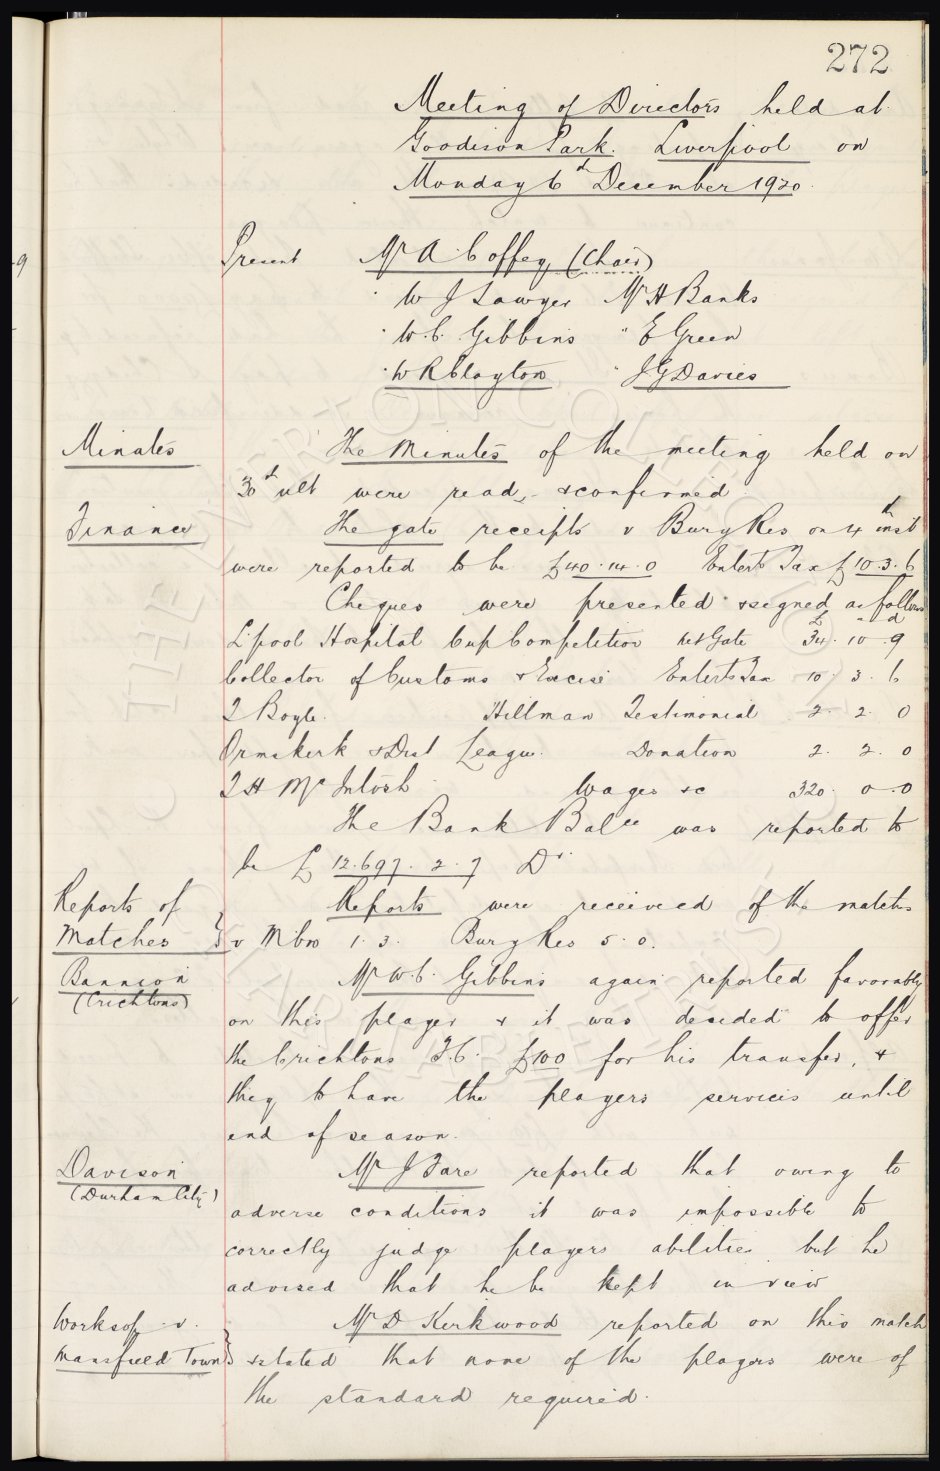 272
Meeting of Directors held at
Goodison Park. Liverpool on
Monday 6th December 1920.
Present Mr A Coffey, (Chair)
" W J Sawyer Mr H Banks
" W.C. Gibbins " E Green
" W R Clayton " J G Davies
Minutes The Minutes of the meeting held on
30th ult were read, & confirmed.
Finance The gate receipts v Bury Res on 4th inst
were reported to be £40.14.0 Entert Tax £10.3.6
Cheques were presented & signed as follows
£ " d
L'pool Hospital Cup Competition net Gate 34.10.9
Collector of Customs & Excise Enterts Tax 10.3.6
T Boyle. Hillman Testimonial 2.2.0
Ormskirk & Dist League. Donation 2.2.0
T H McIntosh Wages &c 320.0.0
The Bank Balce was reported to
be £12.697.2.7 Dr.
Reports of
Matches
Reports were received of the matches
v M'bro 1.3. Bury Res 5.0.
Bannion
(Crichtons)
Mr W C. Gibbins again reported favorably
on this player & it was decided to offer
the Crichtons F.C. £100 for his transfer, &
they to have the players services until
end of season.
Davison
(Durham City)
Mr J Fare reported that owing to
adverse conditions it was impossible to
correctly judge players abilities but he
advised that he be kept in view
Worksop v.
Mansfield Town
Mr D Kirkwood reported on this match
& stated that none of the players were of
the standard required.
9